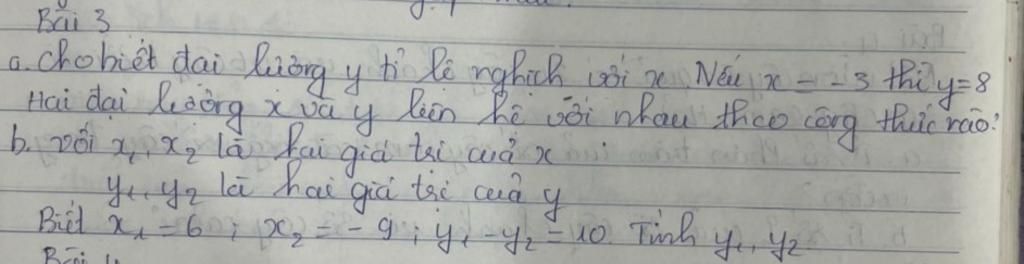 Bài 3
a. Cho biết đại lượng y tỉ lệ nghịch với x. Nếu x = -3 thì y=8
Hai đại lượng x và y liên hệ với nhau theo công thức nào?
b. với x₁, x₂ là hai giá trị của x
y₁, y₂ là hai giá trị của y
Biết x₁ = 6 ; x₂ = -9 ; y₁ - y₂ = 10. Tính y₁, y₂